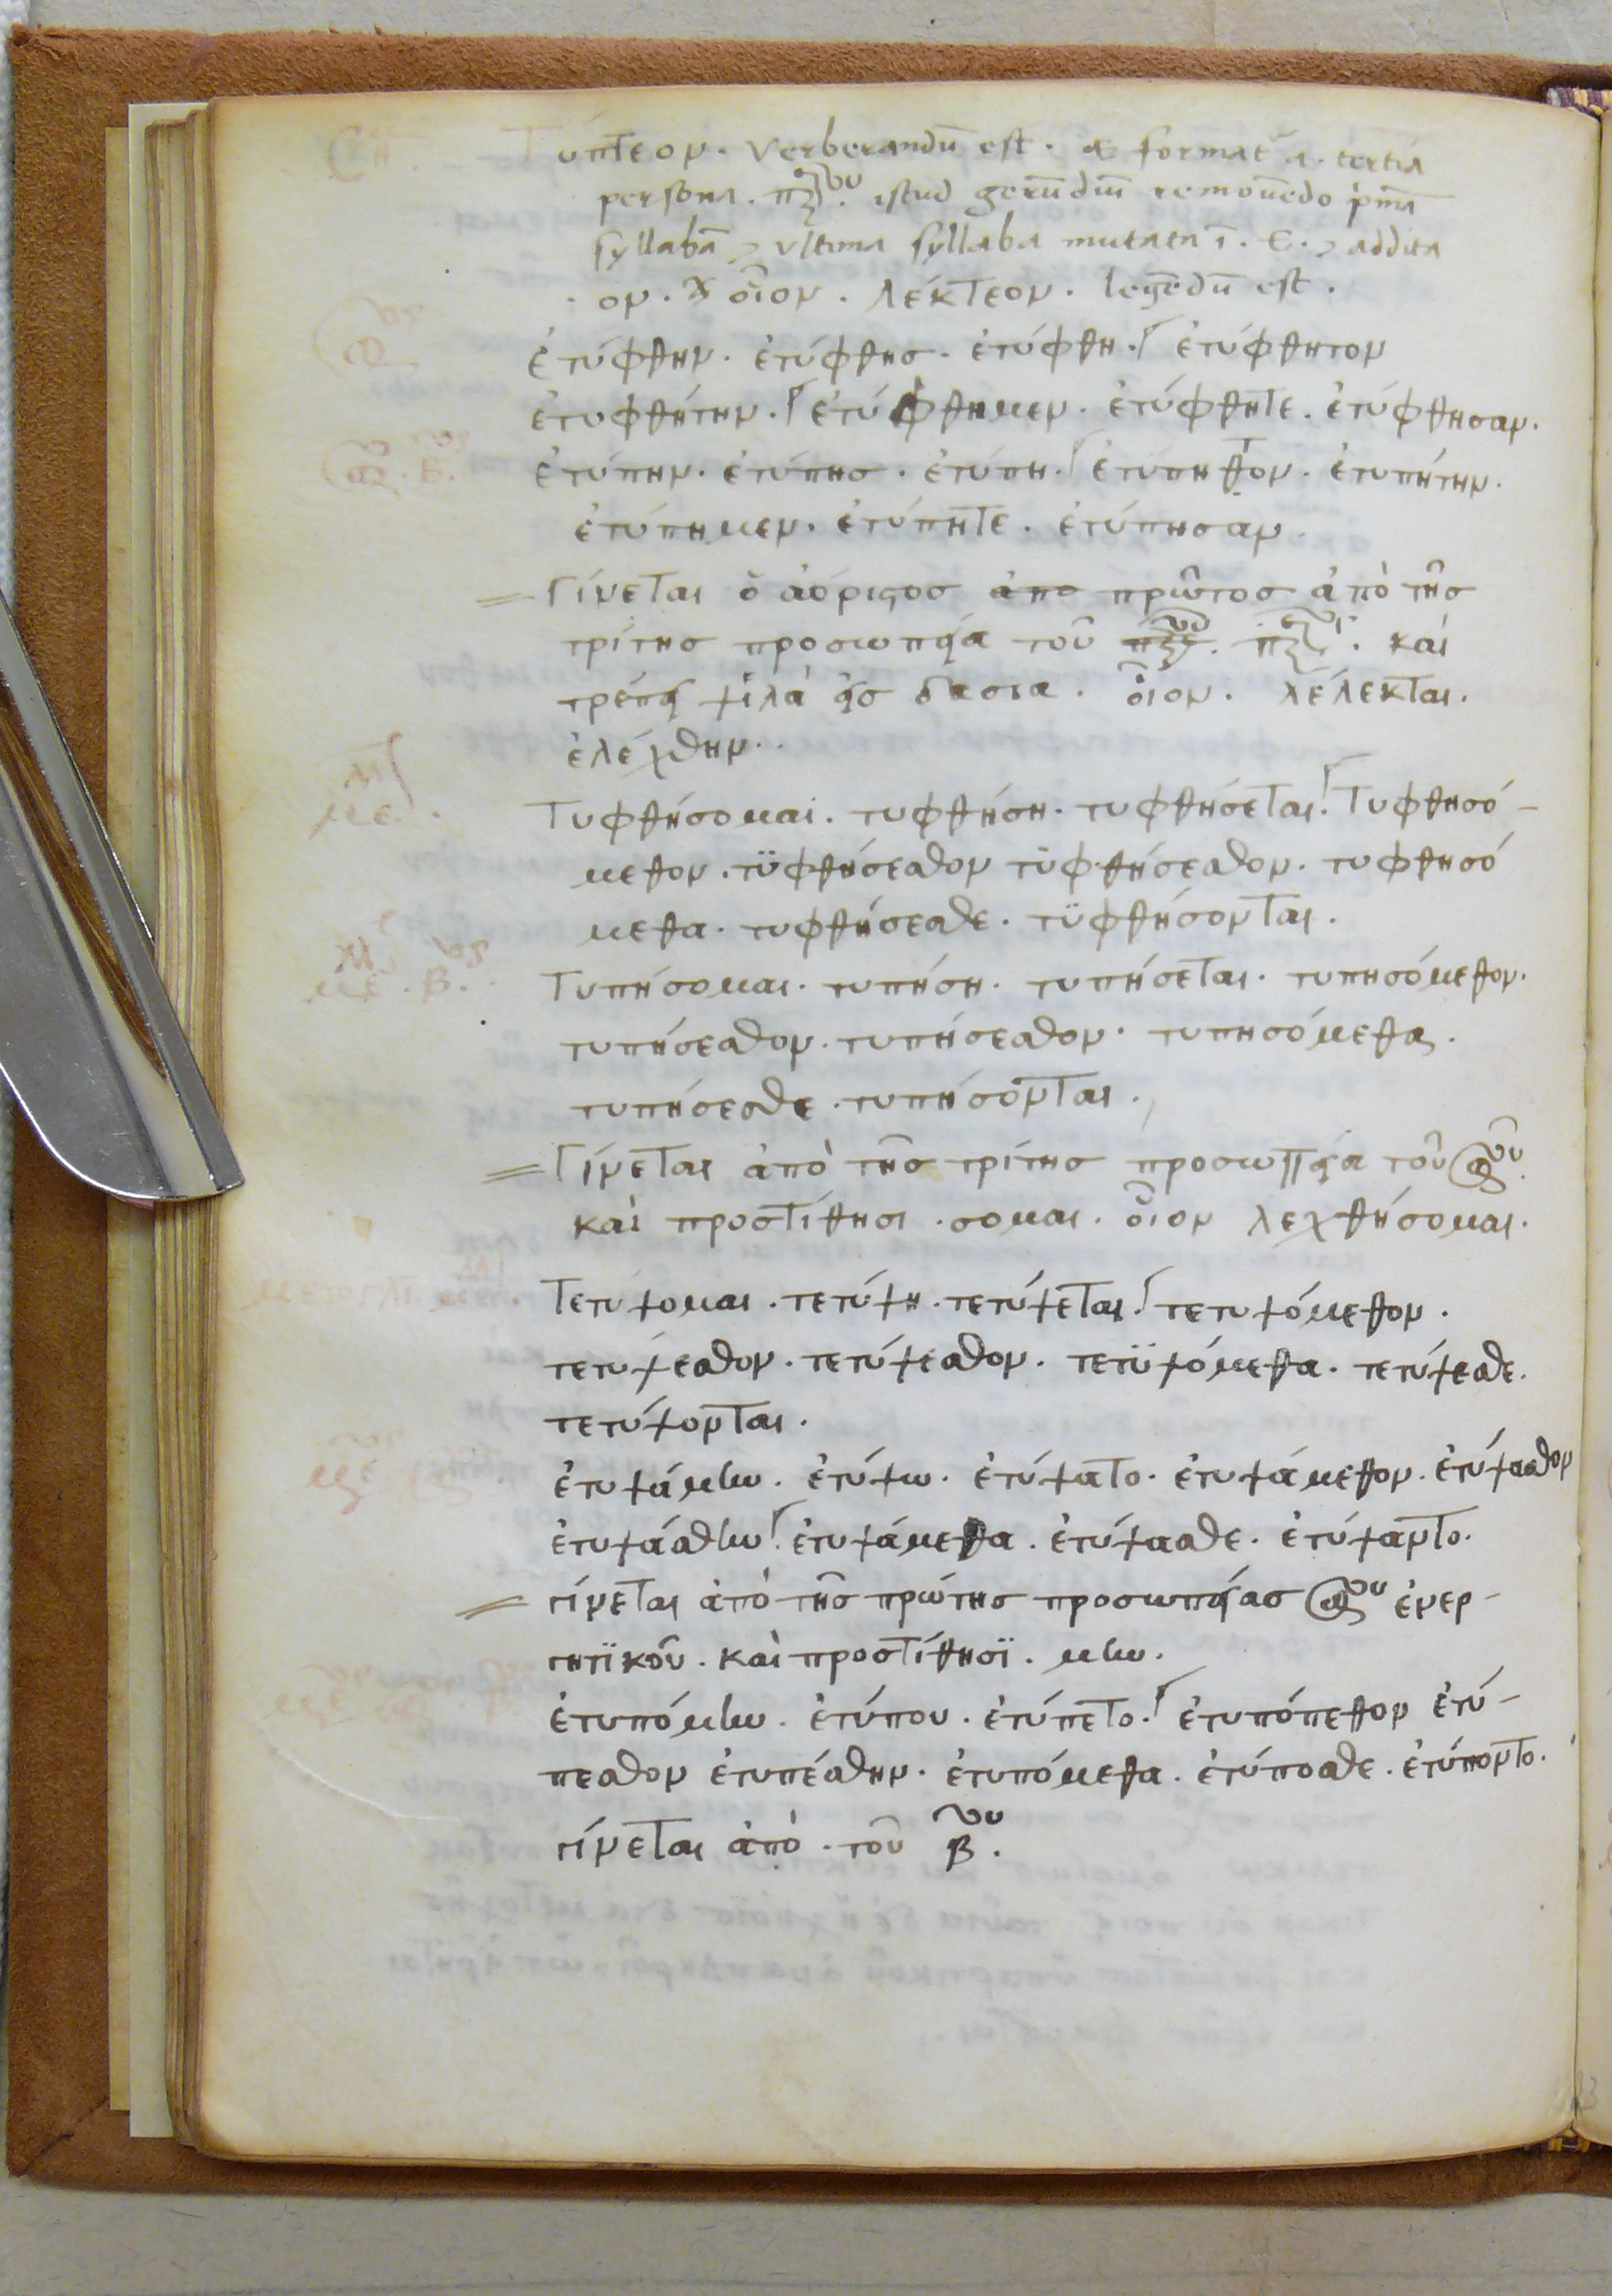 Τύπτεον. Verberandū est. & format᷑ a. tertia
persona. istud gerūdiū removēdo pͥmā
syllabā ⁊ ultima syllaba mutata ī. ε. ⁊ addita
. ον. οἷον. λέκτεον. legēdū est.
ἐτύφθην. ἐτύφθης. ἐτύφθη. ἐτύφθητον
ἐτυφθήτην. ἐτύφθημεν. ἐτύφθητε. ἐτύφθησαν.
β. ἐτύπην. ἐτύπης. ἐτύπη. ἐτύπητον. ἐτυπήτην.
ἐτύπημεν. ἐτύπητε. ἐτύπησαν.
Γίνεται ὁ ἀόριστος ἀπο πρῶτος ἀπὸ τῆς
τρίτης προσωπεία τοῦ καὶ
τρέπει ψιλὰ εἰς δασια. οἷον. λέλεκται.
ἐλέχθην.
με. Τυφθήσομαι. τυφθήση. τυφθήσεται. Τυφθησό-
μεθον. τϋφθήσεσθον τυφθήσεσθον. τυφθησό
μεθα. τυφθήσεσθε. τϋφθήσονται.
με. β. Τυπήσομαι. τυπήση. τυπήσεται. τυπησόμεθον.
τυπήσεσθον. τυπήσεσθον. τυπησόμεθα.
τυπήσεσθε. τυπήσονται.
Γίνεται ἀπὸ τῆς τρίτης προσωπεία τοῦ
καὶ προστίθησι. σομαι. οἷον λεχθήσομαι.
Τετυψομαι. τετύψη. τετύψεται. τετυψόμεθον.
τετυψεσθον. τετύψεσθον. τετϋψόμεθα. τετύψεσθε.
τετύψονται.
ἐτυψάμην. ἐτύψω. ἐτύψατο. ἐτυψάμεθον. ἐτύψασθον
ἐτυψάσθην. ἐτυψάμεθα. ἐτύψασθε. ἐτύψαντο.
γίνεται ἀπὸ τῆς πρώτης προσωπείας ἐνερ-
γητϊκοῦ. καὶ προστίθησϊ. μην.
ἐτυπόμην. ἐτύπου. ἐτύπετο. ἐτυπόπεθον ἐτύ-
πεσθον ἐτυπέσθην. ἐτυπόμεθα. ἐτύποσθε. ἐτύποντο.
γίνεται ἀπὸ. τοῦ β.ου